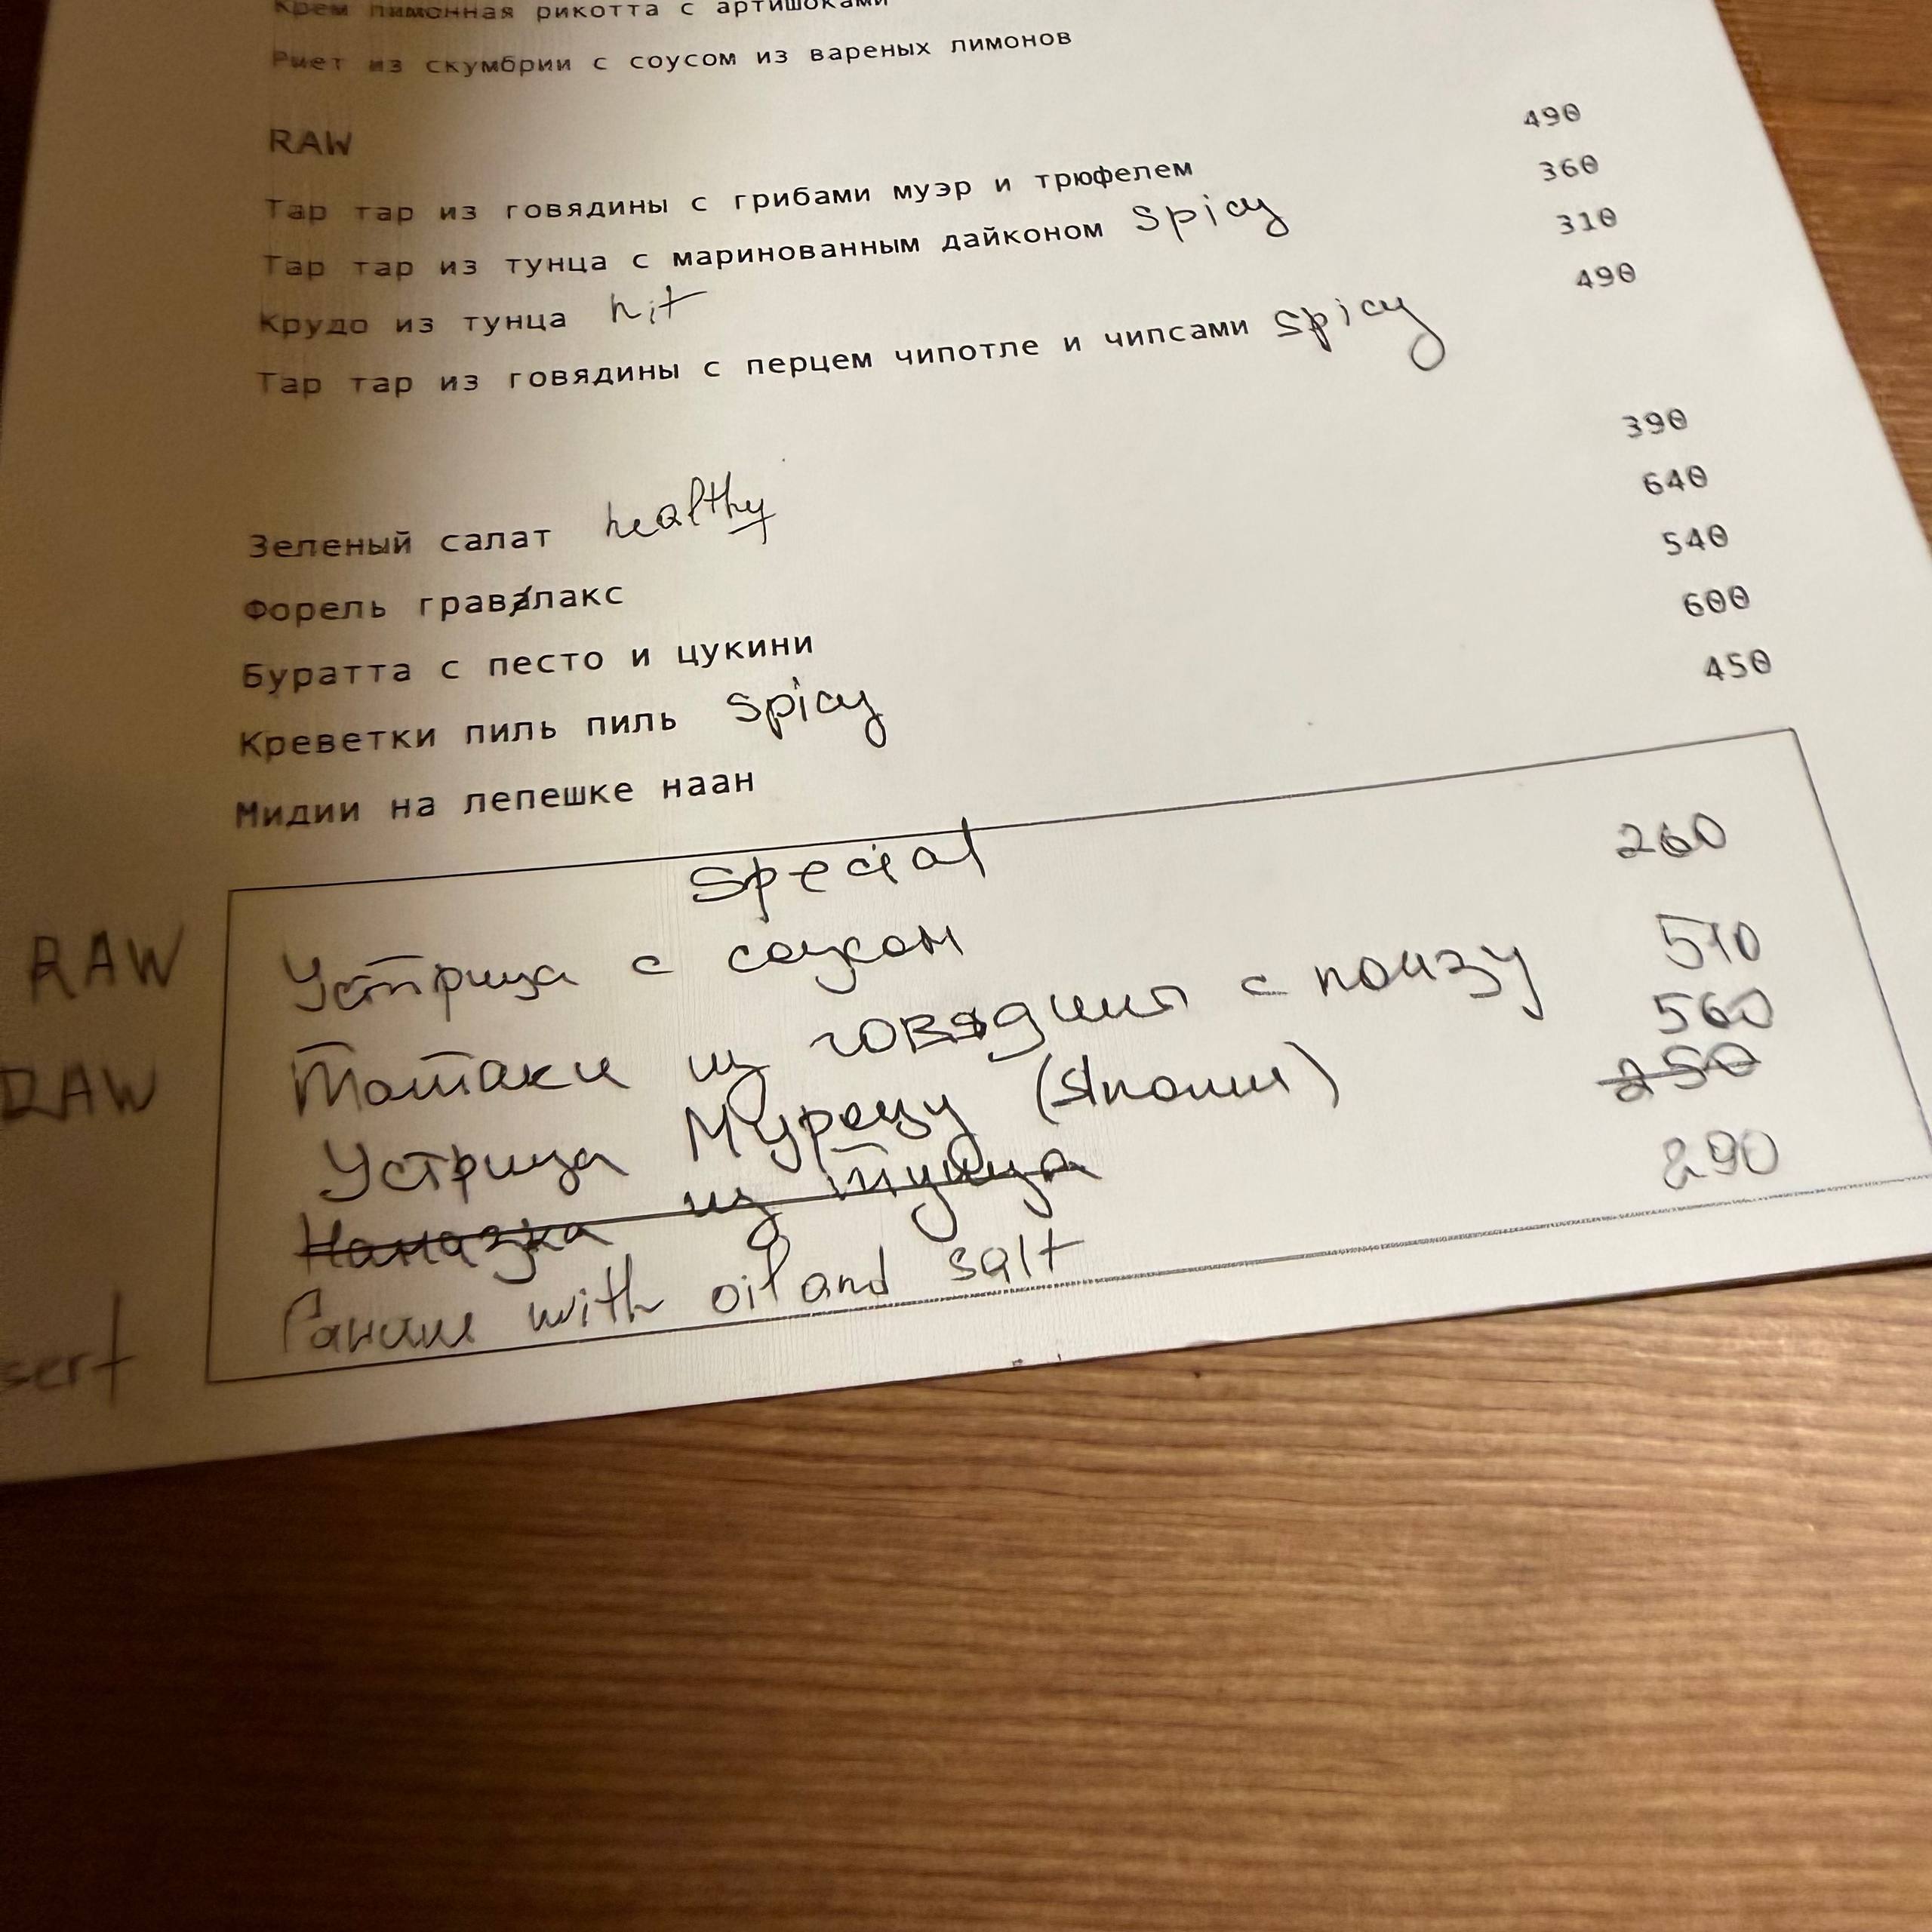 Крем лимонная рикотта с артишоками
Риет из скумбрии с соусом из вареных лимонов
RAW
Тар тар из говядины с грибами муэр и трюфелем 490
Тар тар из тунца с маринованным дайконом spicy 360
Крудо из тунца hit 310
Тар тар из говядины с перцем чипотле и чипсами spicy 490
Зеленый салат healthy 390
Форель гравлакс 640
Буратта с песто и цукини 540
Креветки пиль пиль spicy 600
Мидии на лепешке наан 450
special
RAW Устрица с соусом 260
RAW Татаки из говядины с понзу 510
Устрица Муроцу (Япония) 560
Намазка из тунца 250
sert Ганаш with oil and salt 290